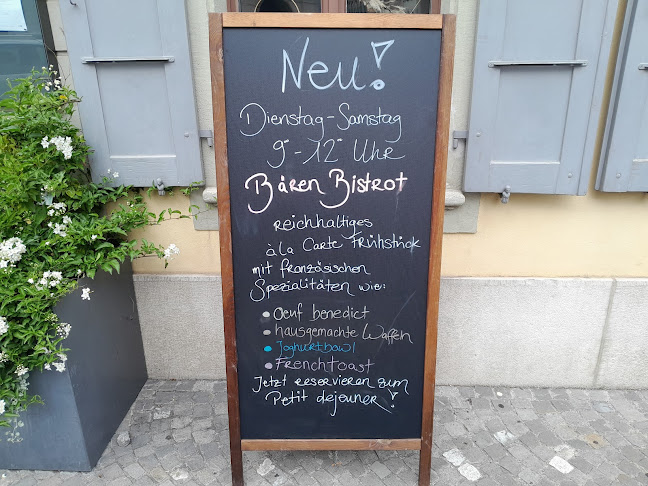 Neu!
Dienstag-Samstag
9°-12° Uhr
Bären Bistrot
reichhaltiges
à la Carte Frühstück
mit französischen
Spezialitäten wie:
Oeuf benedict
hausgemachte Waffen
Joghurtbowl
Frenchtoast
Jetzt reservieren zum
Petit dejeuner!